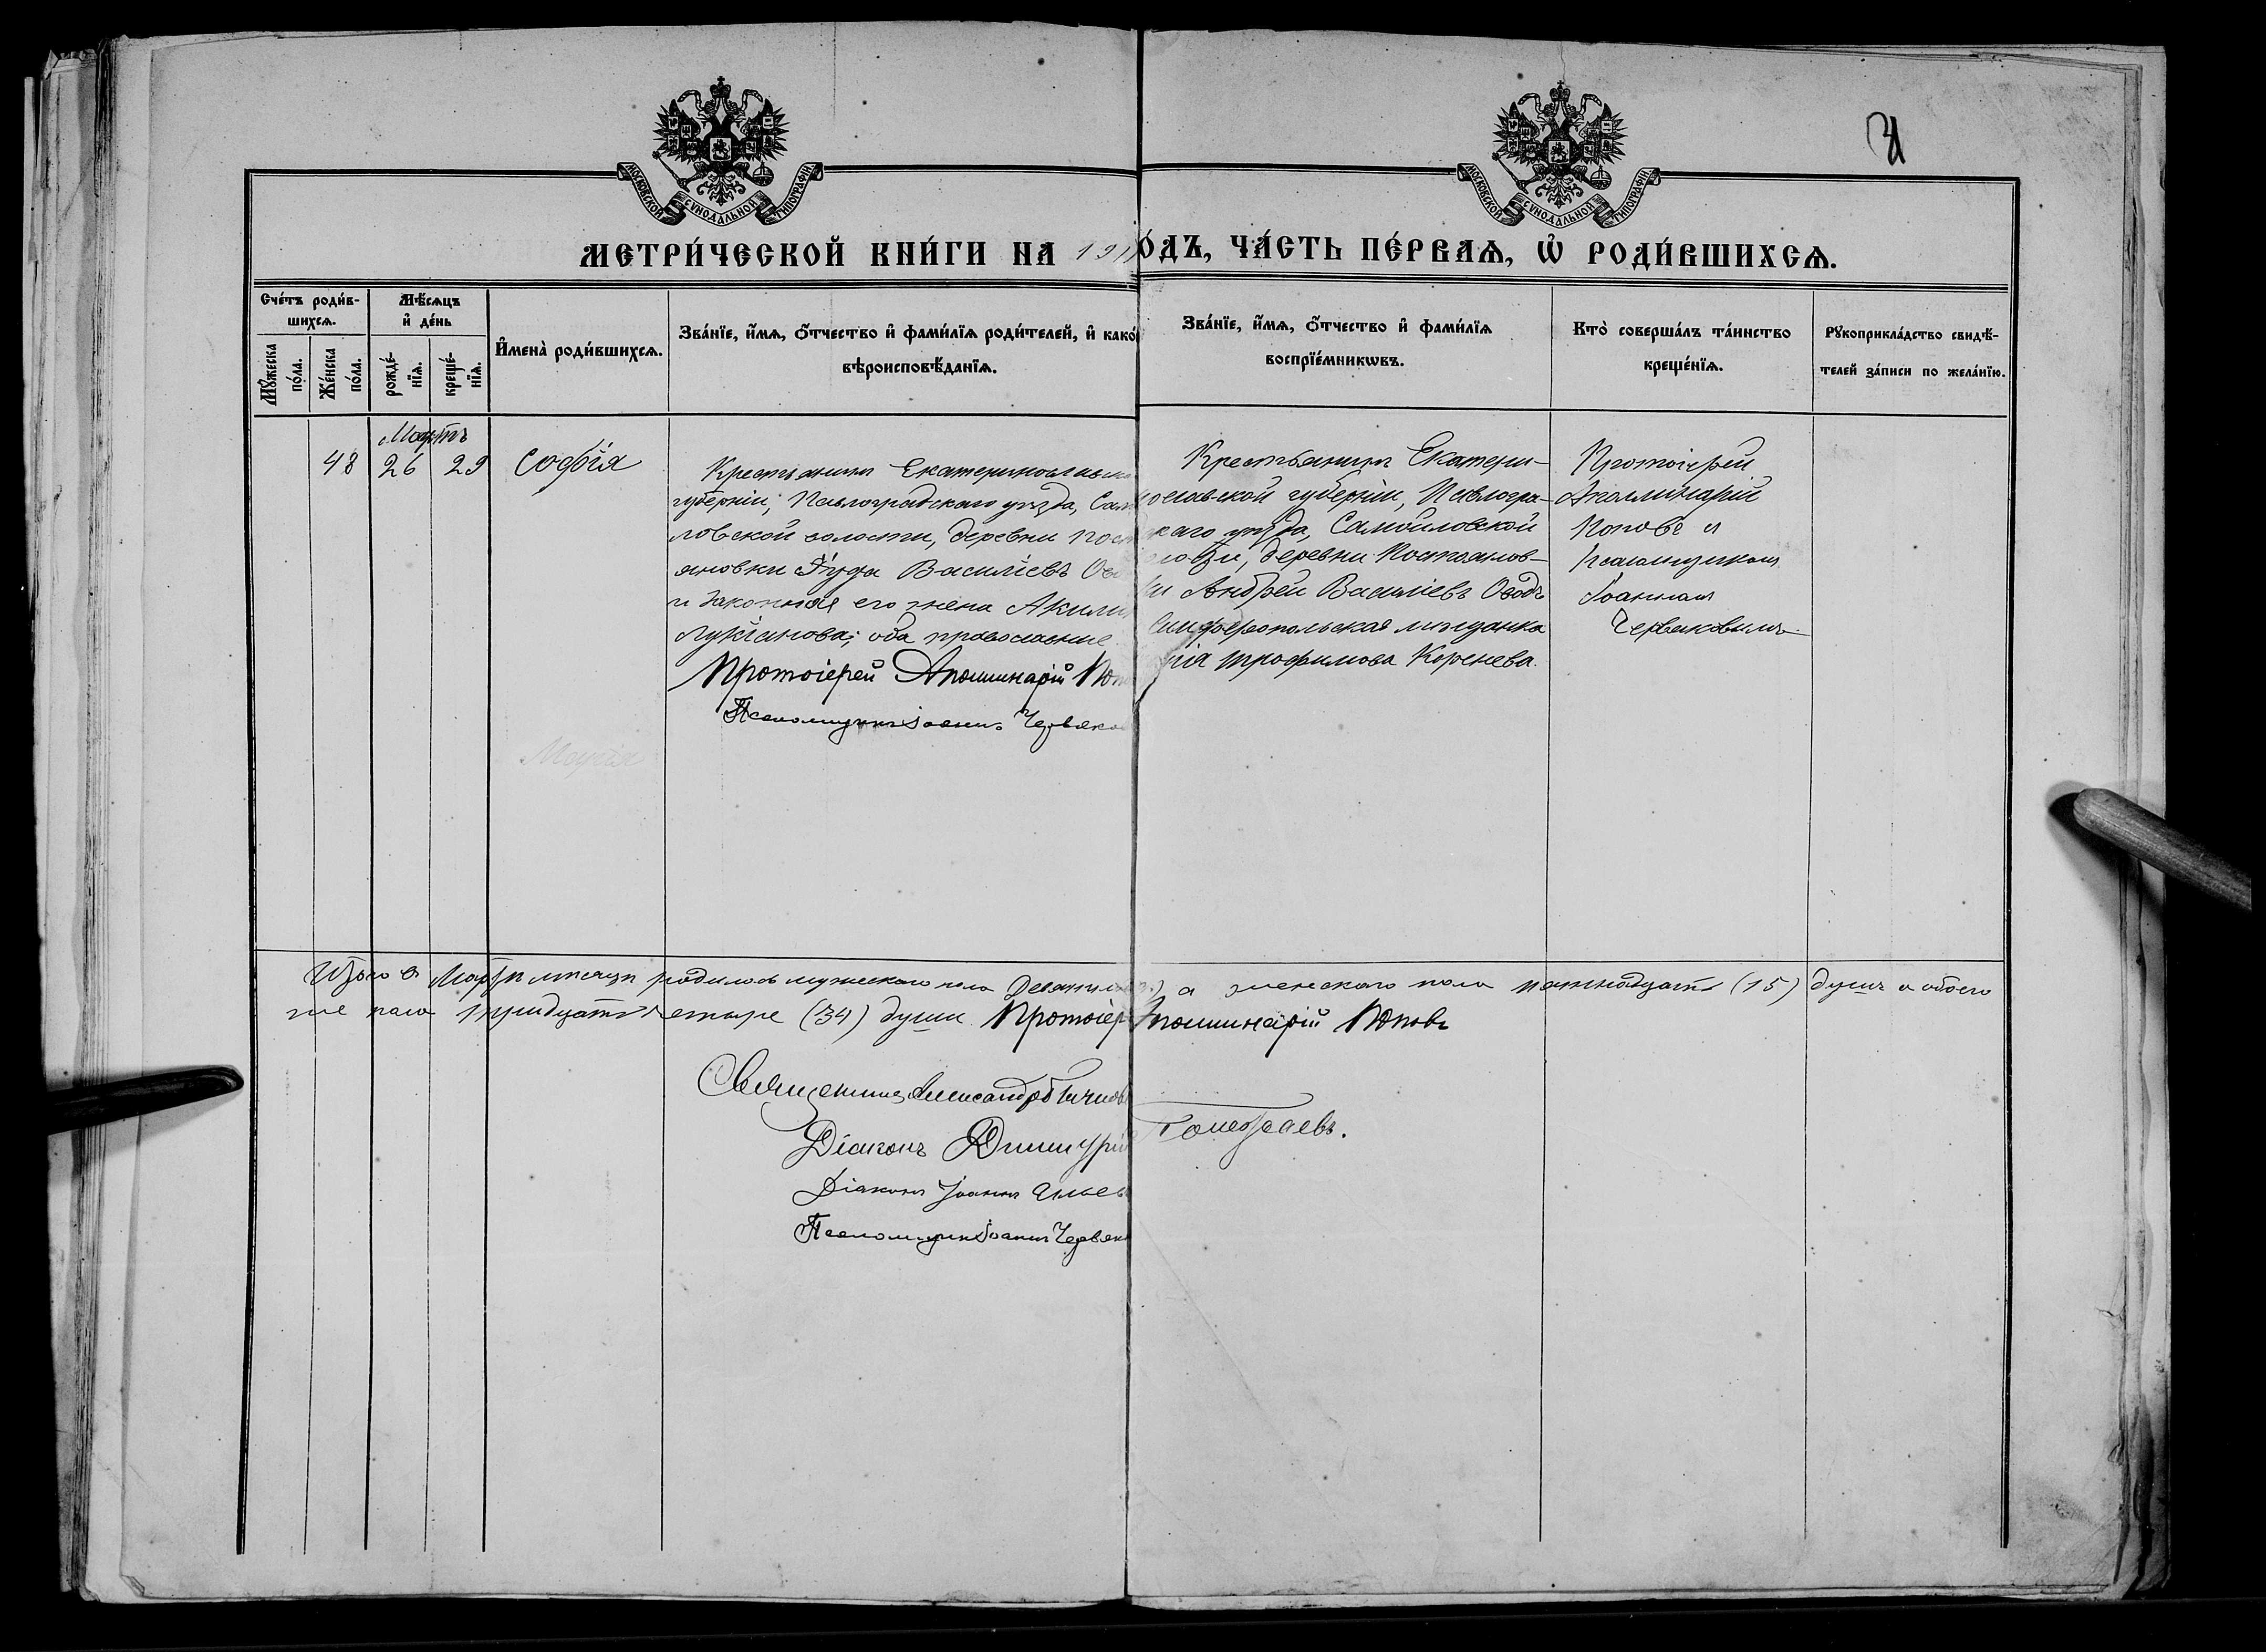 МОСКОВСКОЙ СѴНОДАЛЬНОЙ ТИПОГРАФІИ
МОСКОВСКОЙ СѴНОДАЛЬНОЙ ТИПОГРАФІИ
МЕТРИ́ЧЕСКОЙ КНИ́ГИ НА 191
О́ДЪ, ЧА́СТЬ ПЕ́РВАѦ, Ѡ҆ РОДИ́ВШИХСѦ.
Сче́тъ роди́в-
шихсѧ.
Мꙋ́жеска по́ла.
Же́нска по́ла.
Мѣ́сѧцъ
и҆ де́нь
рожде́-
нїѧ.
креще́-
нїѧ.
И҆мена̀ роди́вшихсѧ.
Зва́нїе, и҆́мѧ, ѻ҆́тчество и҆ фами́лїѧ роди́телей, и҆ како
вѣроисповѣ́данїѧ.
Зва́нїе, и҆́мѧ, ѻ҆́тчество и҆ фами́лїѧ
воспрїе́мникѡвъ.
Кто̀ соверша́лъ та́инство
креще́нїѧ.
Рꙋкоприкла́дство свидѣ́-
телей за́писи по жела́нїю.
Мартъ
48 26 29 Софія
Крестьянинъ Екатеринославско
губерніи, Павлоградскаго уѣзда, Сам
ловской волости, деревни Пост
ановки Іуда Василіевъ Ово
и законная его жена Акили
Лукіанова; оба православные
Протоіерей Аполлинарій Поп
Псаломщикъ Іоаннъ Червяко
Марія
Крестьянинъ Екатери-
нославской губерніи, Павлогра-
скаго уѣзда, Самойловской
волости, деревни Постоянов-
ки Андрей Василіевъ Оводъ
Симферопольская мѣщанка
рія Трофимова Коренева.
Протоіерей
Аполлинарій
Поповъ и
Псаломщикомъ
Іоанномъ
Червяковымъ
Итого въ Мартѣ мѣсяцѣ родилось мужескаго пола Девятна а женскаго пола пятнадцать (15) душъ а обоего
же пола тридцать четыре (34) души. Протоіер Аполлинарій Поповъ
Священникъ Александръ
Діаконъ Димитрій
Діаконъ Іоаннъ Ильев
Псаломщикъ Іоаннъ Червяк